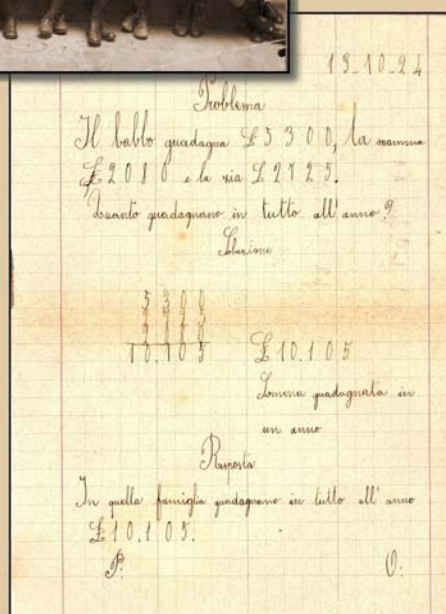 Problema
Il babbo guadagna £ 5300, la mamma
£ 2080 e la zia £ 2725.
Quanto guadagnano in tutto all'anno?
Soluzione
5300
10.105 £ 10.105
Somma guadagnata in
un anno
Risposta
In quella famiglia guadagnano in tutto all'anno
£ 10.105.